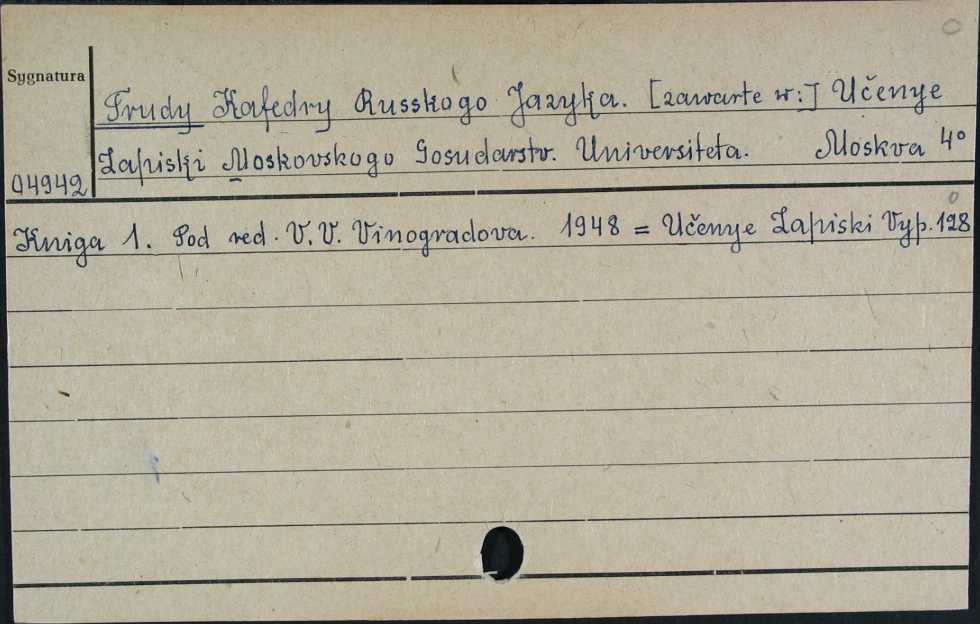 Sygnatura
Trudy Kafedry Russkogo Jazyka. [zawarte w:] Učenye
Zapiski Moskovskogo Gosudarstv. Universiteta. Moskva 4°
04942
Kniga 1. Pod red. V. V. Vinogradova. 1948 = Učenye Zapiski Vyp. 128